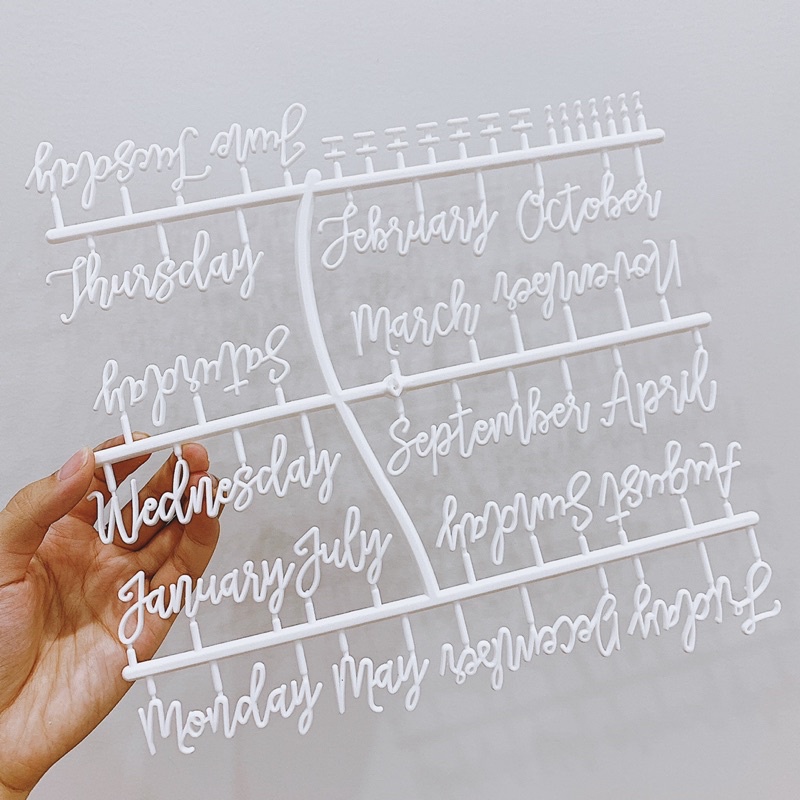 Tuesday June
Thursday February October
Saturday March November
Wednesday September April
January July Sunday August
Monday May December Friday